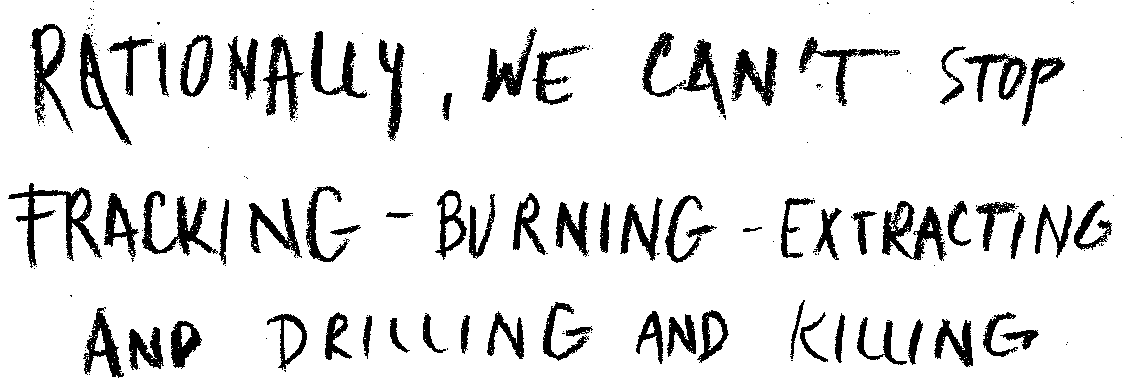 RATIONALLY, WE CAN'T STOP
FRACKING - BURNING - EXTRACTING
AND DRILLING AND KILLING